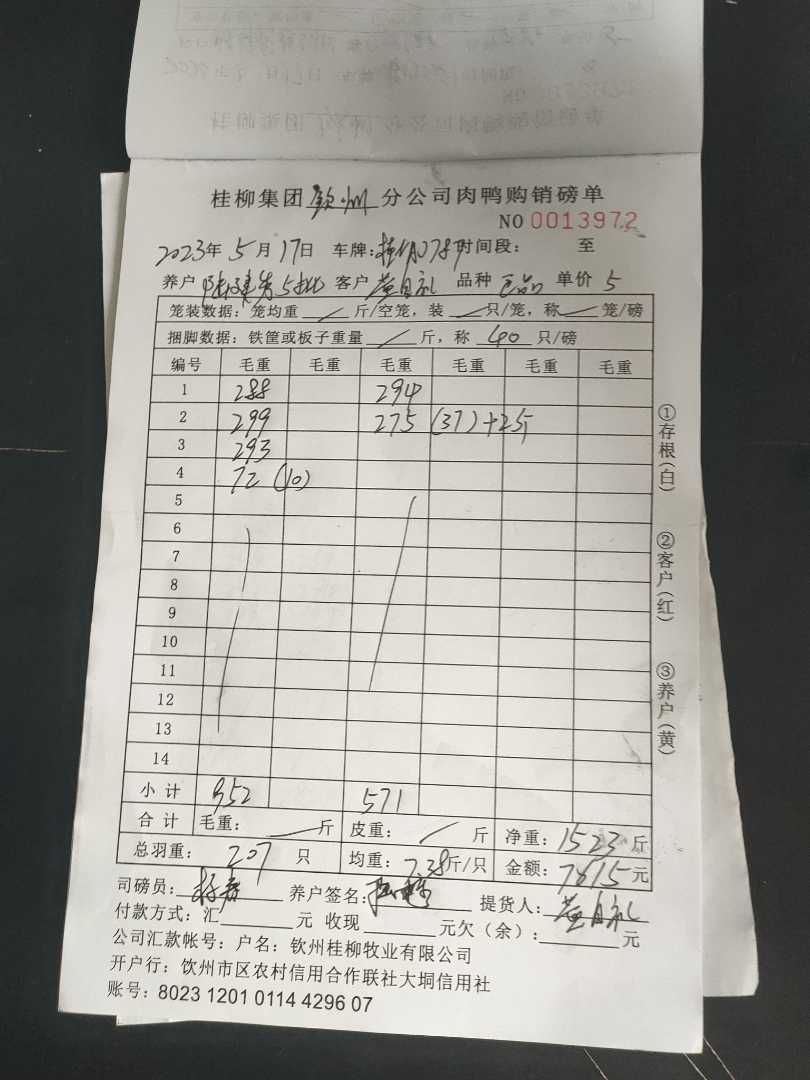 桂柳集团 钦州 分公司肉鸭购销磅单
NO 0013972
2023年 5月 17日 车牌: 时间段: 至
养户 5批 客户 黄自礼 品种 单价 5
笼装数据: 笼均重 / 斤/空笼, 装 / 只/笼, 称 / 笼/磅
捆脚数据: 铁筐或板子重量 / 斤, 称 40 只/磅
编号 毛重 毛重 毛重 毛重 毛重 毛重
1 288 294
2 299 275 (37)+2斤
3 293
4 72 (10)
5
6
7
8
9
10
11
12
13
14
小计 952 571
合计 毛重: 斤 皮重: / 斤 净重: 1523 斤
总羽重: 207 只 均重: 7.38斤/只 金额: 7615元
司磅员: 养户签名: 提货人: 黄自礼
付款方式: 汇 元 收现 元欠(余): 元
公司汇款帐号: 户名: 钦州桂柳牧业有限公司
开户行: 钦州市区农村信用合作联社大垌信用社
账号: 8023 1201 0114 4296 07
①存根(白)
②客户(红)
③养户(黄)